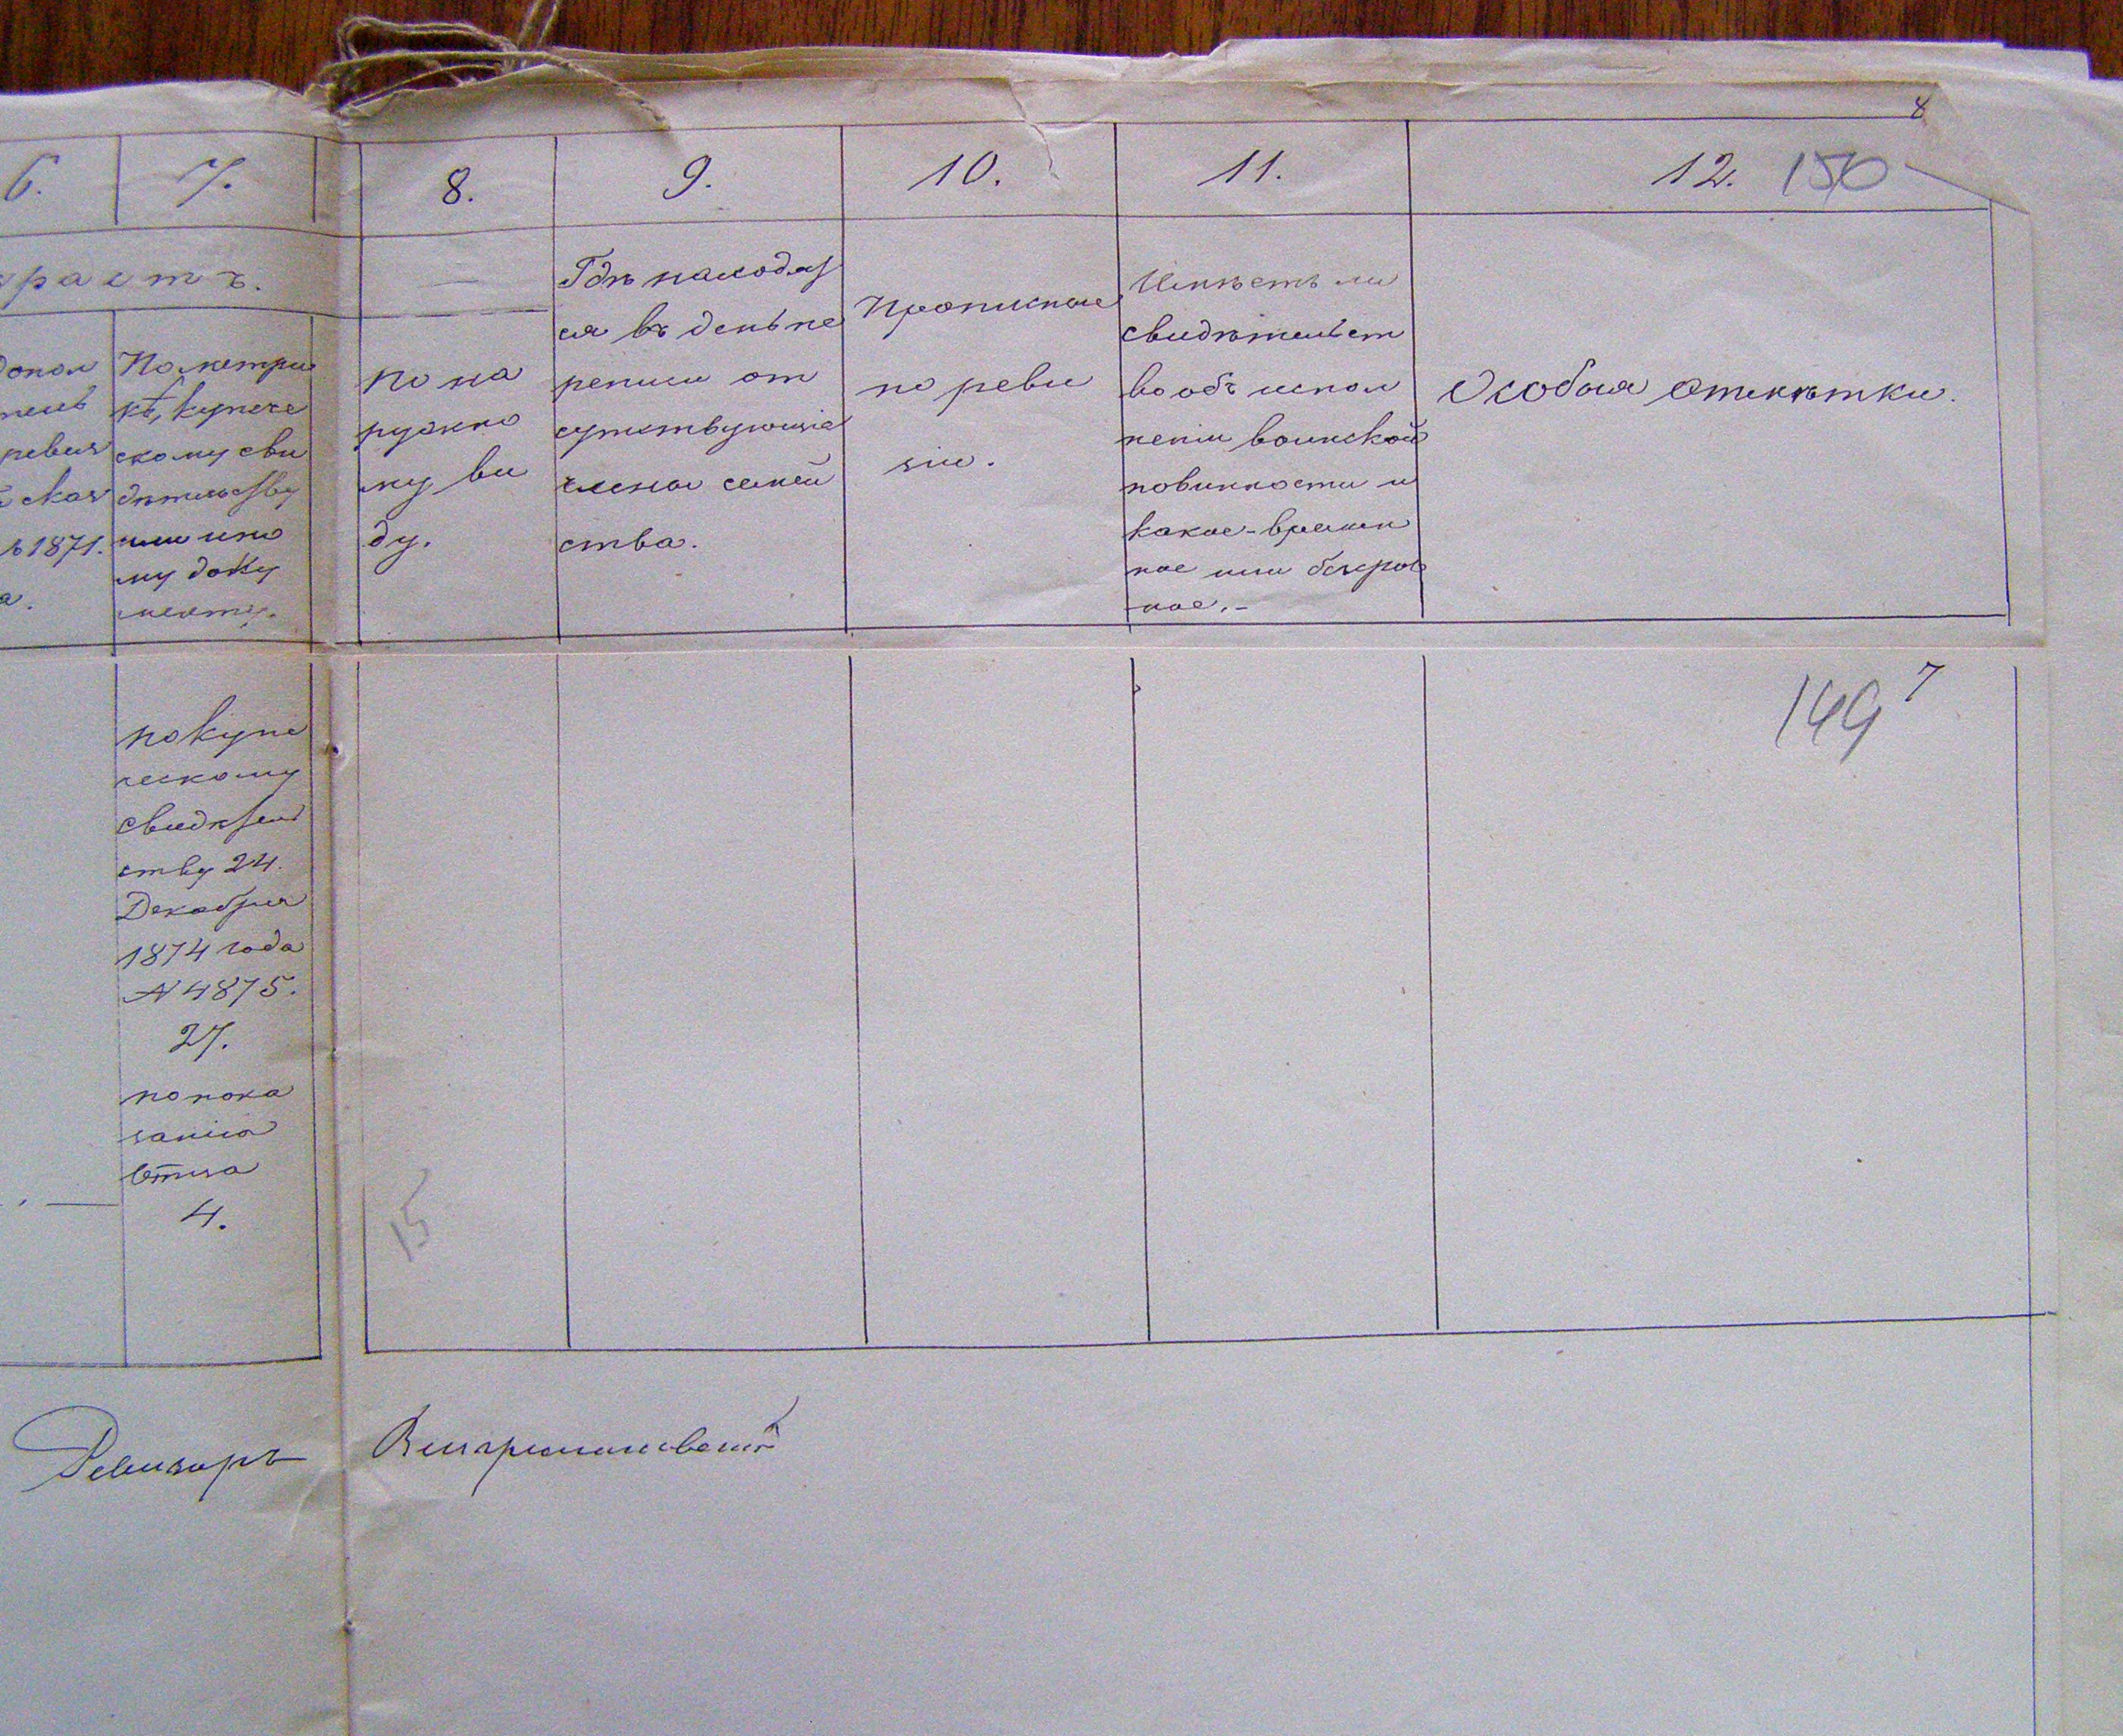 8
6. 7. 8. 9. 10. 11. 12. 150
растъ.
допол
ревиз
ская
1871.
а.
По метри
кѣ, купече
скому сви
дѣтельству
или ино
му доку
менту.
По на
ружно
му ви
ду.
Гдѣ находят
ся въ день пе
реписи от
сутствующіе
члены семей
ства.
Прописные
по реви
зіи.
Имѣетъ ли
свидѣтельст
во объ испол
неніи воинской
повинности и
какое-времен
ное или безсроч
ное.-
Особыя отмѣтки.
149 7
по купе
ческому
свидѣтель
ству 24.
Декабря
1874 года
№ 4875.
27.
по пока
занію
Отца
4.
15
Ревизоръ